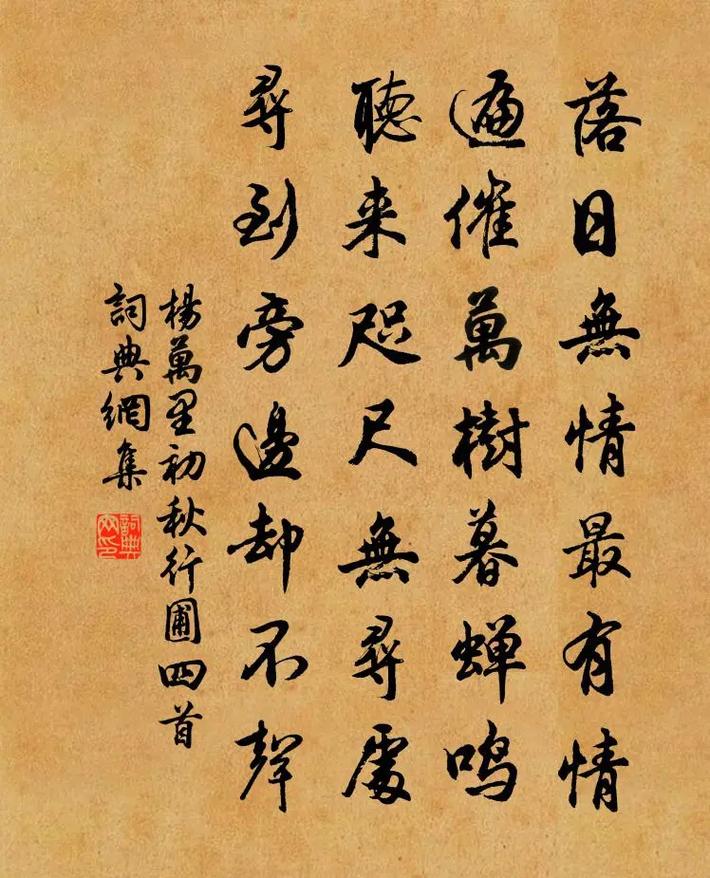 落日無情最有情
遍催萬樹暮蟬鳴
聽来咫尺無尋處
尋到旁邊却不聲
楊萬里初秋行圃四首
詞典網集
詞典網印